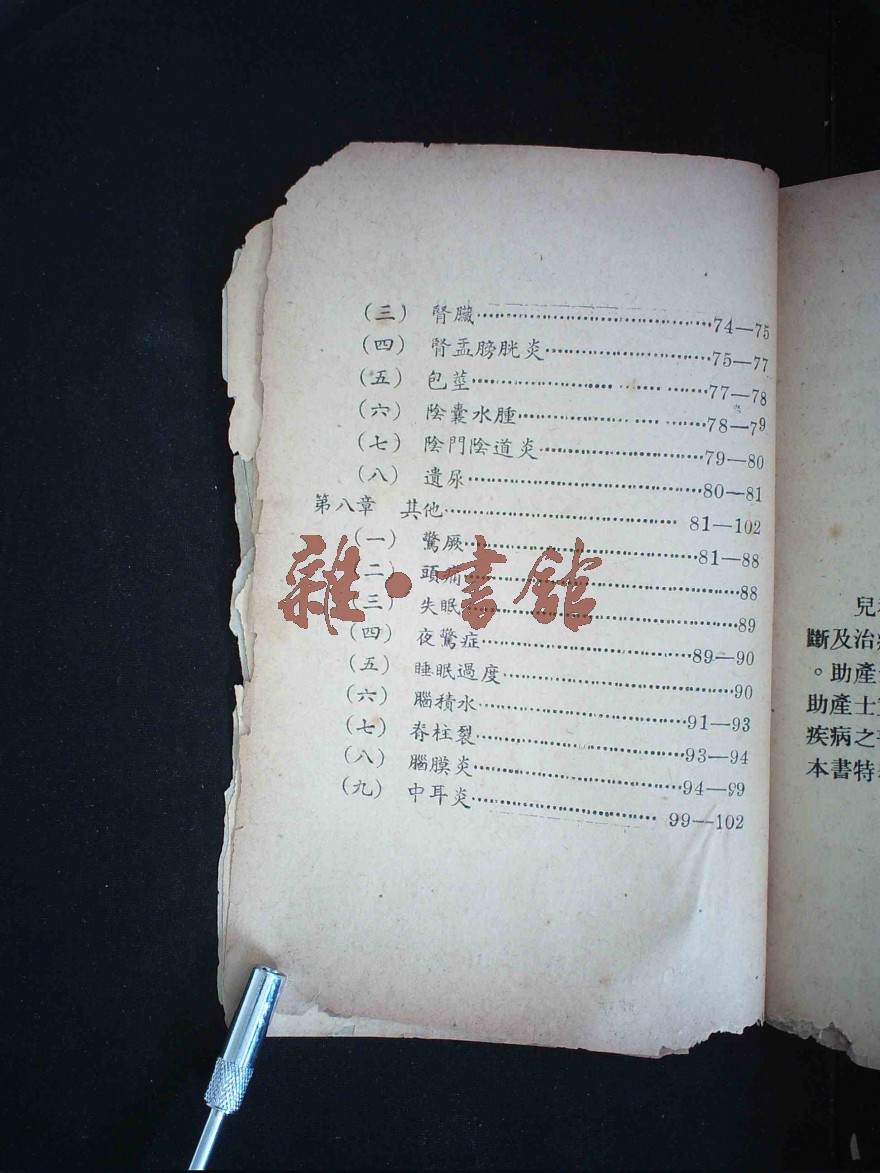 (三) 腎臟………………74—75
(四) 腎盂膀胱炎………………75—77
(五) 包莖………………77—78
(六) 陰囊水腫………………78—79
(七) 陰門陰道炎………………79—80
(八) 遺尿………………80—81
第八章 其他………………81—102
(一) 驚厥………………81—88
(二) 頭痛………………88
(三) 失眠………………89
(四) 夜驚症………………89—90
(五) 睡眠過度………………90
(六) 腦積水………………91—93
(七) 脊柱裂………………93—94
(八) 腦膜炎………………94—99
(九) 中耳炎………………99—102
雜·書館
兒
斷及治
。助產
助產士
疾病之
本書特